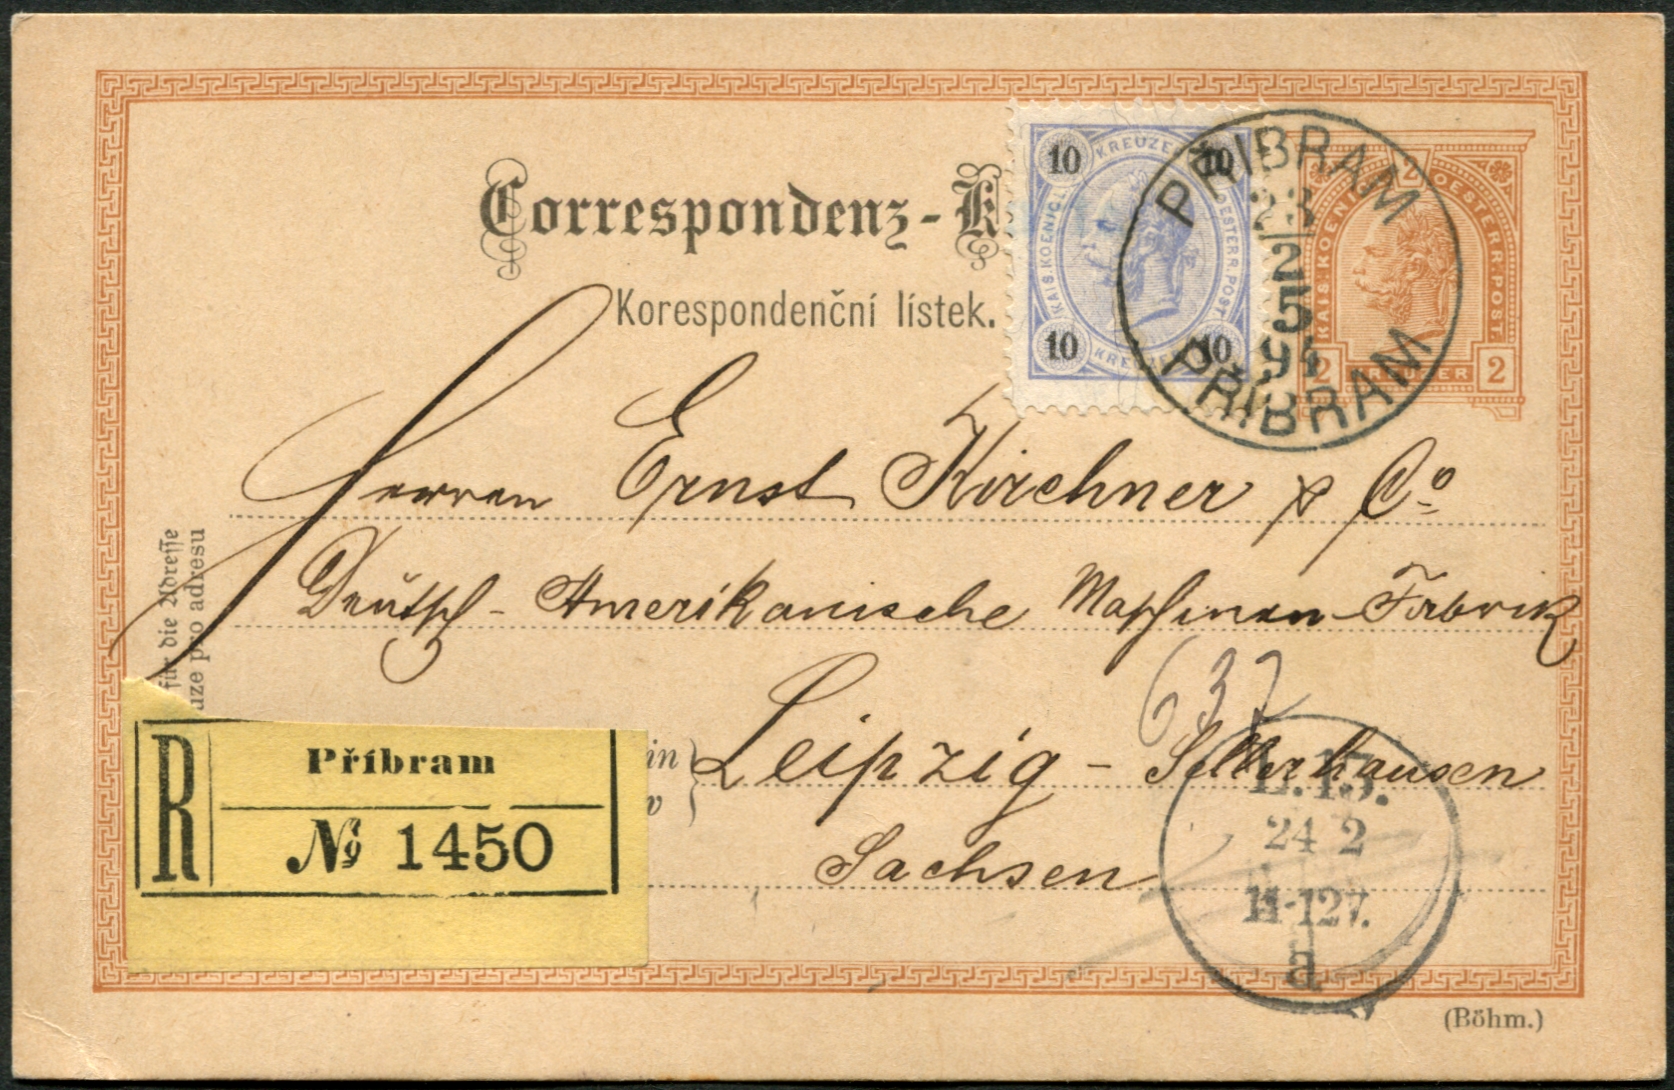 Correspondenz-K
Korespondenční lístek.
10 KREUZE 10
KAIS. KOENIG. OESTERR. POST.
10 KREUZE 10
KAIS. KOENI OESTERR. POST.
2 2
PŘIBRAM
23
2
5
94
PŘIBRAM
Herren Ernst Kirchner & Co
Deutsch-Amerikanische Maschinen-Fabrik
637
Leipzig - Sellerhausen
Sachsen
für die Adresse
uze pro adresu
in
v
R
Příbram
No 1450
L.13.
24 2
11-12V.
a
(Böhm.)